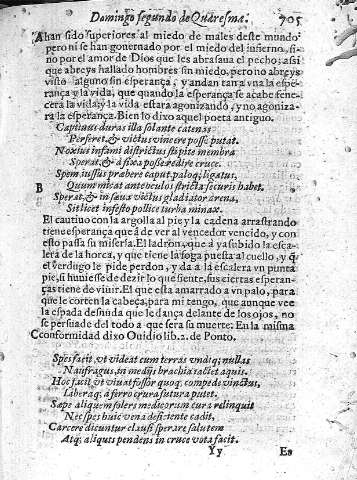 Domingo segundo de Quaresma. 705
A han sido superiores al miedo de males deste mundo
pero ni se han gouernado por el miedo del infierno, si-
no por el amor de Dios que les abrasaua el pecho; assi
que abreys hallado hombres sin miedo, pero no abreys
visto alguno sin esperança, y andan tan a vna la espe-
rança y la vida, que quando la esperança se acabe fene-
cera la vida, y la vida estara agonizando, y no agoniza-
ra la esperança. Bien lo dixo aquel poeta antiguo.
Captiuus duras illa solante catenas
Perferet, & victus vincere posse putat.
Noxius infami districtus stipite membra
Sperat, & à fixa posse redire cruce.
Spem iussus præbere caput, paloq; ligatus,
B Quum micat ante oculos stricta securis habet.
Sperat, & in sæua victus gladiator arena,
Sit licet infesto pollice turba minax.
El cautiuo con la argolla al pie y la cadena arrastrando
tiene esperança que á de ver al vencedor vencido, y con
esto passa su miseria. El ladron, que á ya subido la esca-
lera de la horca, y que tiene la soga puesta al cuello, y q̃
el verdugo le pide perdon, y da a la escalera vn punta
pie, si huuiesse de dezir lo que siente, sus ciertas esperan-
ças tiene de viuir. El que esta amarrado a vn palo, para
que le corten la cabeça, para mi tengo, que aunque vee
la espada desnuda que le dança delante de los ojos, no
se persuade del todo a que sera su muerte: En la misma
C conformidad dixo Ouidio lib. 2. de Ponto.
Spes facit, vt videat cum terras vndiq; nullas
Naufragus, in medijs brachia iactet aquis.
Hoc facit vt viuat fossor quoq; compede vinctus,
Liberaq; à ferro crura futura putet.
Sæpe aliquem solers medicorum cura relinquit
Nec spes huic vena deficiente cadit,
Carcere dicuntur clausi sperare salutem
Atq; aliquis pendens in cruce vota facit.
Yy Es